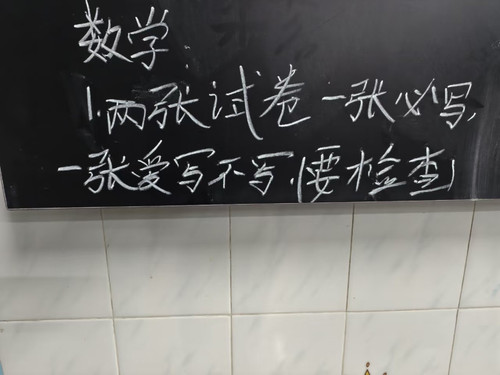 数学：
1.两张试卷一张必写，
一张爱写不写.(要检查)